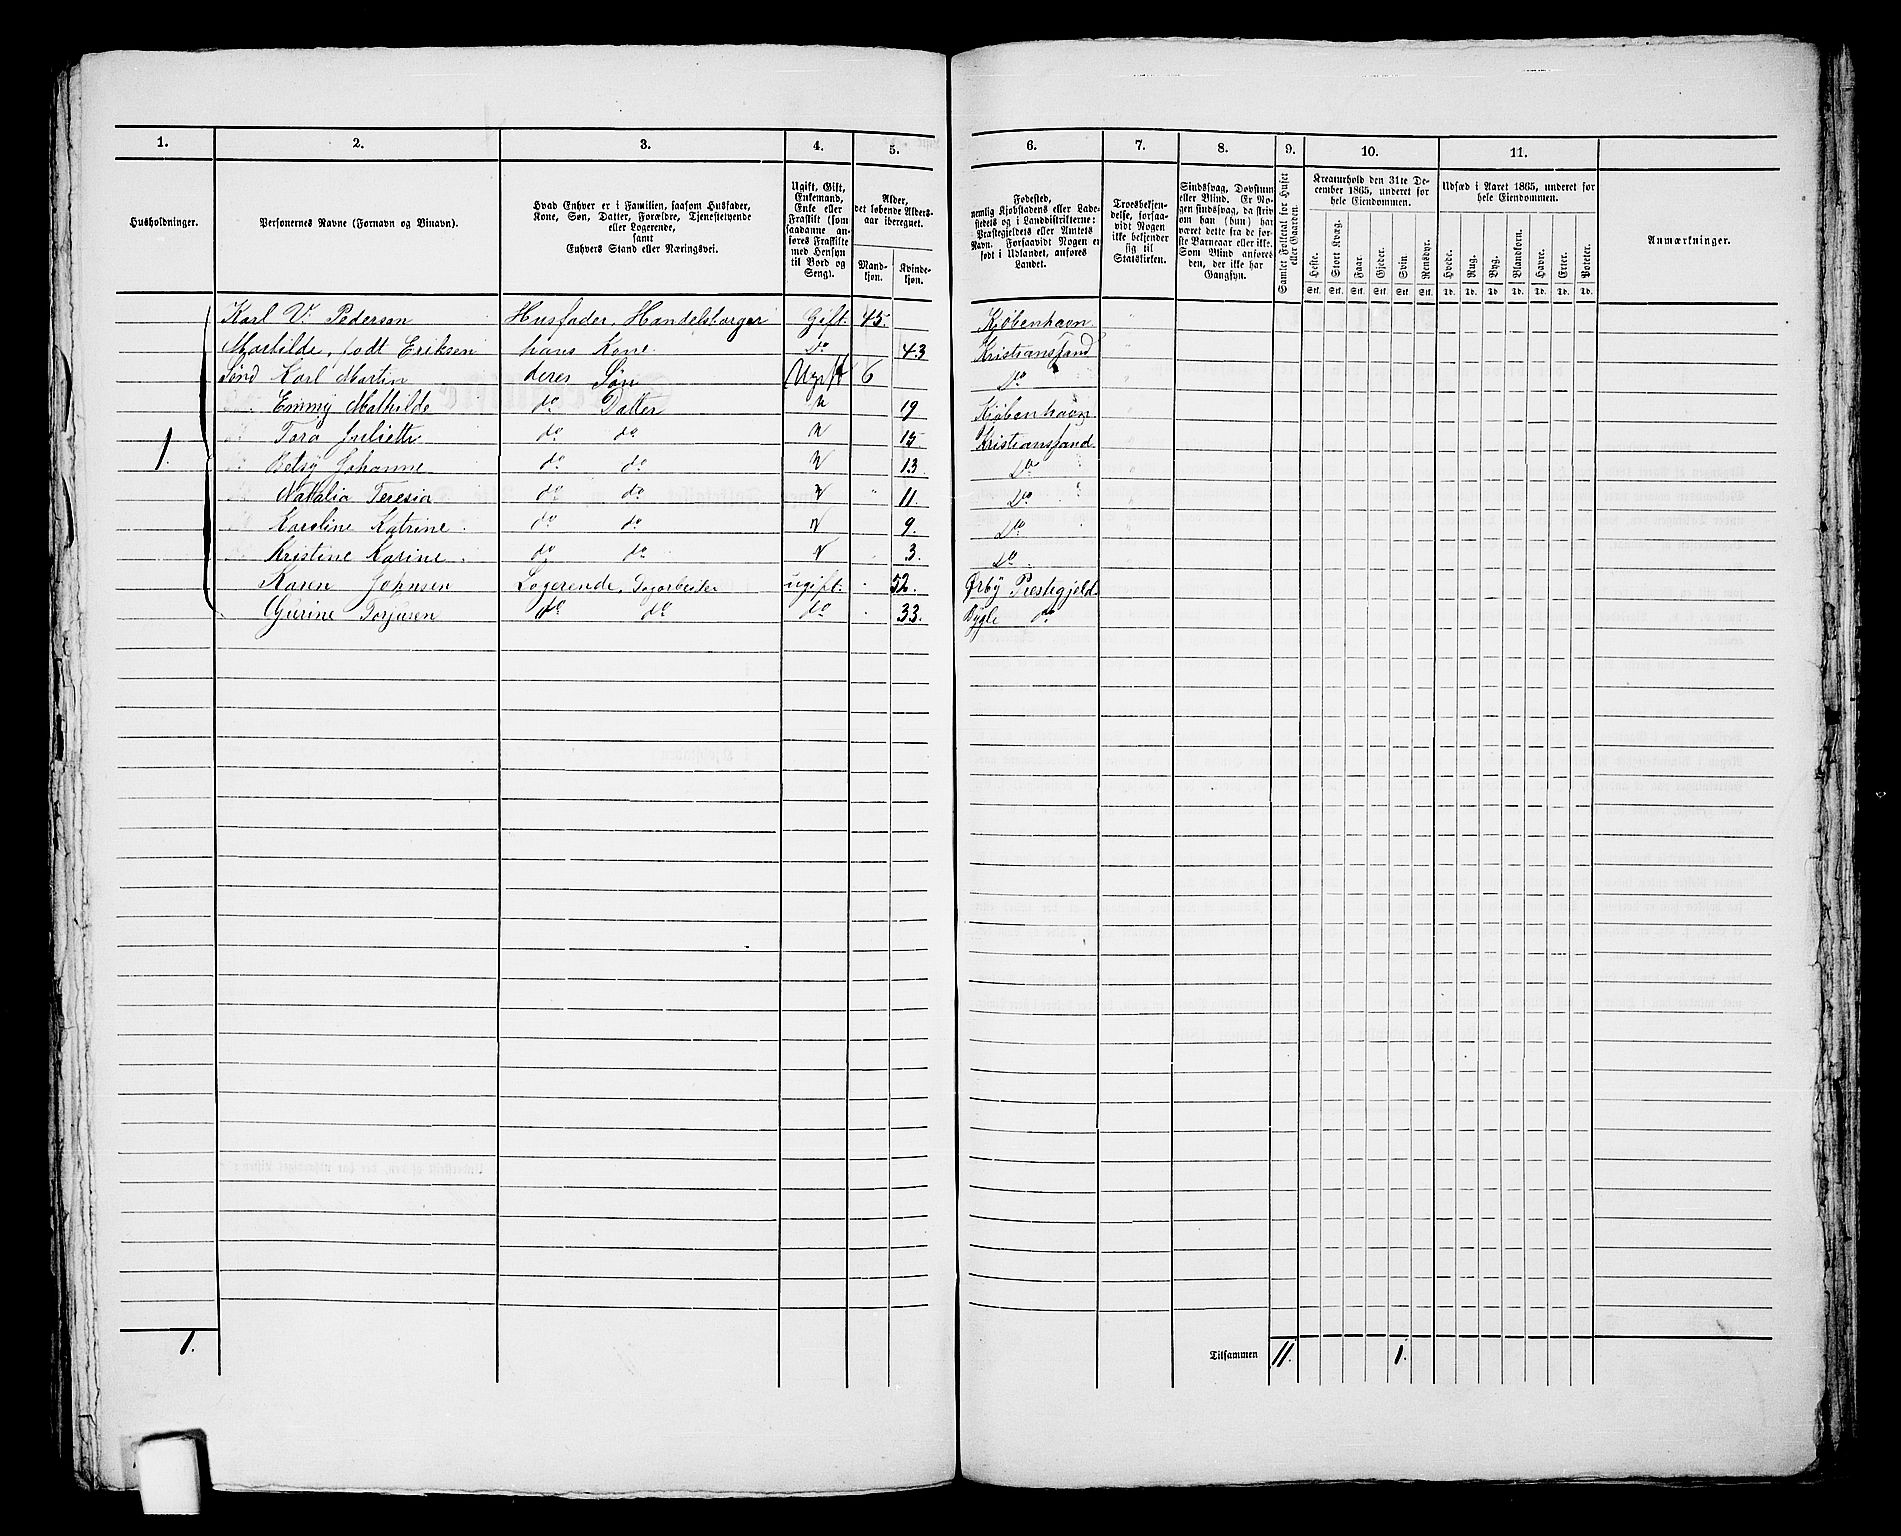 1. 2. 3. 4. 5. 6. 7. 8. 9. 10. 11.
Husholdninger.
Personernes Navne (Fornavn og Binavn).
Hvad Enhver er i Familien, saasom Husfader,
Kone, Søn, Datter, Forældre, Tjenestetyende
eller Logerende,
samt
Enhvers Stand eller Næringsvei.
Ugift, Gift,
Enkemand,
Enke eller
Fraskilt (som
saadanne an-
føres Fraskilte
med Hensyn
til Bord og
Seng).
Alder,
det løbende Alders-
aar iberegnet.
Mand-
kjøn.
Kvinde-
kjøn.
Fødested,
nemlig Kjøbstadens eller Lade-
stedets og i Landdistrikterne:
Præstegjeldets eller Amtets
Navn. I Forsaavidt Nogen er
født i Udlandet, anføres
Landet.
Troesbekjen-
delse, forsaa-
vidt Nogen
ikke bekjender
sig til
Statskirken.
Sindssvag, Døvstum
eller Blind. Er No-
gen sindssvag, da skriv
om han (hun) har
været dette fra de før-
ste Barneaar eller ikke.
Som Blind anføres
den, der ikke har
Gangsyn.
Samlet Folketal for Huset
eller Gaarden.
Kreaturhold den 31te De-
cember 1865, underet for
hele Eiendommen.
Heste. Stort Kvæg. Faar. Gjeder. Svin. Rensdyr.
Stk. Stk. Stk. Stk. Stk. Stk.
Udsæd i Aaret 1865, underet for
hele Eiendommen.
Hvede. Rug. Byg. Blandkorn. Havre. Erter. Poteter.
Td. Td. Td. Td. Td. Td. Td.
Anmærkninger.
Karl V. Pedersen Husfader, Handelsborger Gift. 45. Kjøbenhavn.
Mathilde, født Eriksen hans Kone. do 43 Kristianssand
Sønd Karl Martin deres Søn Ugift 6 Do
Emmy Mathilde do Datter U 19 Kjøbenhavn.
Tora Juliette. do do U 15 Kristianssand
1. Betsy Johanne do do U 13 Do
Natalia Teresia do do U 11. Do
Karoline Katrine do do U 9. Do
Kristine Karine do do U 3. Do
Karen Johnsen Logerende, Dagarbeider ugift. 52. Præstegjeld.
Gurine Torjusen do do do 33. Bygle do
1. Tilsammen 11. 1.